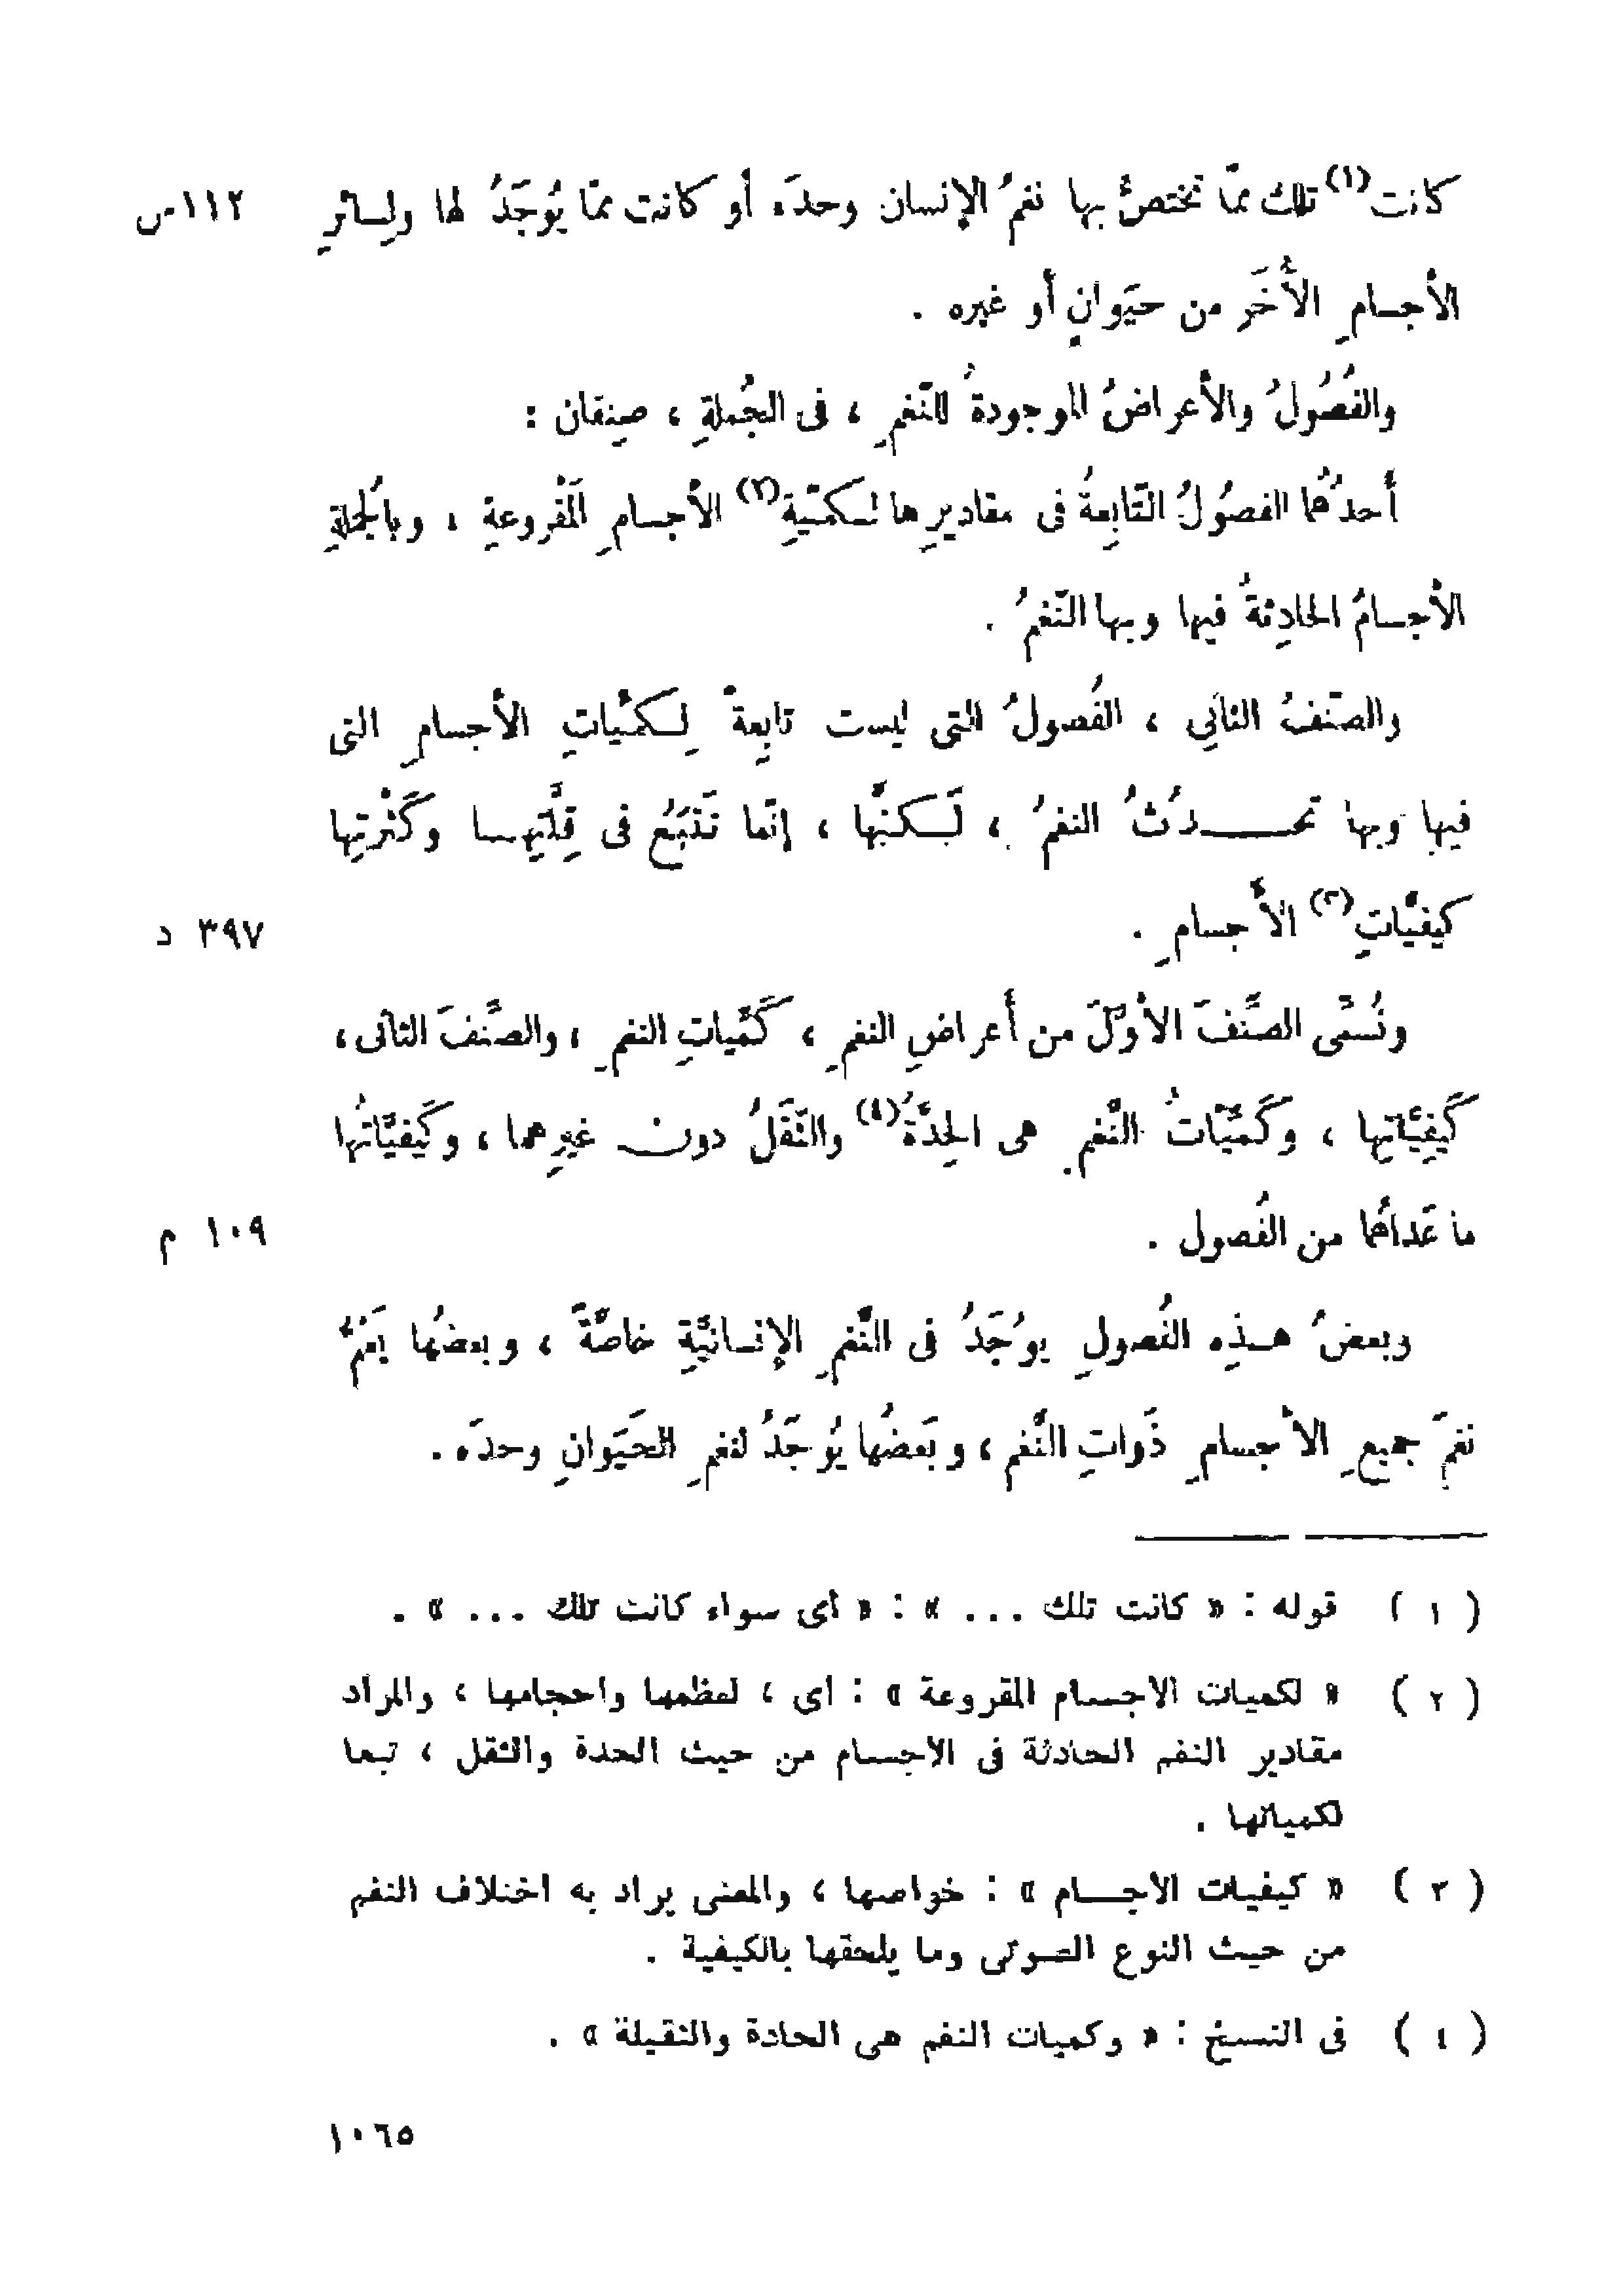 كانت(١) تلك ممّا تختصُّ بها نغمُ الإنسان وحدَه أو كانت ممّا يُوجَدُ لها ولِسائرِ ١١٢ س
الأجسامِ الأُخَر من حيَوانٍ أو غيره .
والفُصُولُ والأعراضُ الموجودةُ للنّغمِ ، فى الجُملةِ ، صِنفان :
أحدُهُما الفصُولُ التّابِعةُ فى مقاديرِها لكميّةِ(٢) الأجسامِ المَقْروعةِ ، وبالجُملةِ
الأجسامُ الحادِثةُ فيها وبها النّغمُ .
والصّنفُ الثانِى ، الفُصولُ التى ليست تابِعةً لِكميّاتِ الأجسامِ التى
فيها وبها تحدُثُ النغمُ ، لَكنّها ، إنّما تَتبَعُ فى قِلَّتِها وكَثْرتِها
كيفيّاتِ(٣) الأجسامِ . ٣٩٧ د
ونُسمِّى الصّنفَ الأوّلَ من أعراضِ النغمِ ، كَمّياتِ النغمِ ، والصّنفَ الثانى ،
كَيفِيّاتِها ، وكَمّيّاتُ النّغمِ هى الحِدَّةُ(٤) والثّقَلُ دون غيرِهما ، وكَيفيّاتُها
ما عَداهُما من الفُصول . ١٠٩ م
وبعضُ هذِه الفُصولِ يوُجَدُ فى النّغمِ الإنسانيّةِ خاصّةً ، وبعضُها يَعُمُّ
نغمَ جميعِ الأجسامِ ذَواتِ النّغم ، وبَعضُها يُوجَدُ لنغمِ الحيَوانِ وحدَه .
( ١ ) قوله : « كانت تلك ... » : « أى سواء كانت تلك ... » .
( ٢ ) « لكميات الاجسام المقروعة » : اى ، لعظمها واحجامها ، والمراد
مقادير النغم الحادثة فى الاجسام من حيث الحدة والثقل ، تبعا
لكمياتها .
( ٣ ) « كيفيات الاجسام » : خواصها ، والمعنى يراد به اختلاف النغم
من حيث النوع الصوتى وما يلحقها بالكيفية .
( ٤ ) فى النسخ : « وكميات النغم هى الحادة والثقيلة » .
١٠٦٥